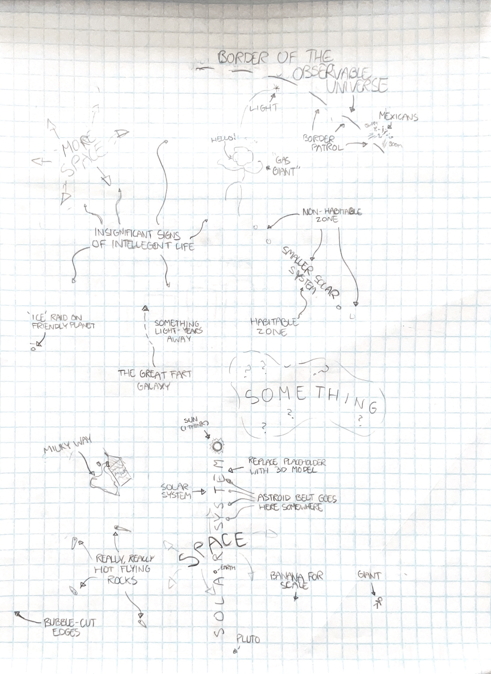 BORDER OF THE
OBSERVABLE
UNIVERSE
LIGHT
MEXICANS
BORDER
PATROL
HELLO!
"GAS
GIANT"
MORE
SPACE
NON-HABITABLE
ZONE
INSIGNIFICANT SIGNS
OF INTELLEGENT LIFE
SMALLER SOLAR
SYSTEM
'ICE' RAID ON
FRIENDLY PLANET
SOMETHING
LIGHT-YEARS
AWAY
HABITABLE
ZONE
THE GREAT FART
GALAXY
? ? ?
SOMETHING
? ? ?
SUN
MILKY WAY
REPLACE PLACEHOLDER
WITH 3D MODEL
SOLAR
SYSTEM
ASTROID BELT GOES
HERE SOMEWHERE
SOLAR SYSTEM
SPACE
EARTH
REALLY, REALLY
HOT FLYING
ROCKS
BANANA FOR
SCALE
GIANT
BUBBLE-CUT
EDGES
PLUTO